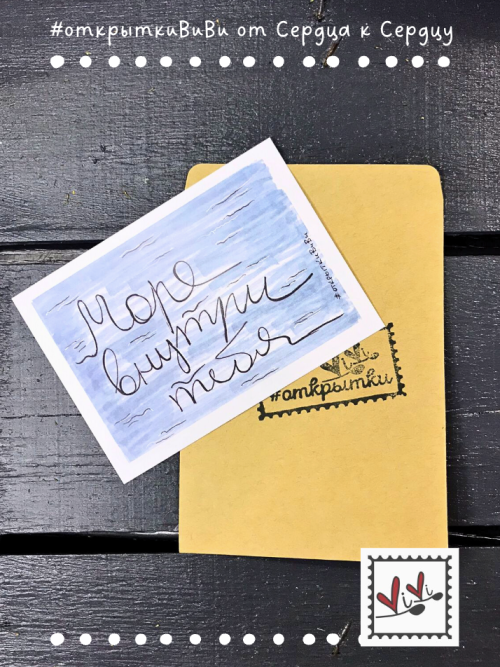 #открыткиВиВи от Сердца к Сердцу
Море
внутри
тебя
#открыткиВиВи
ViVi
#открытки
ViVi